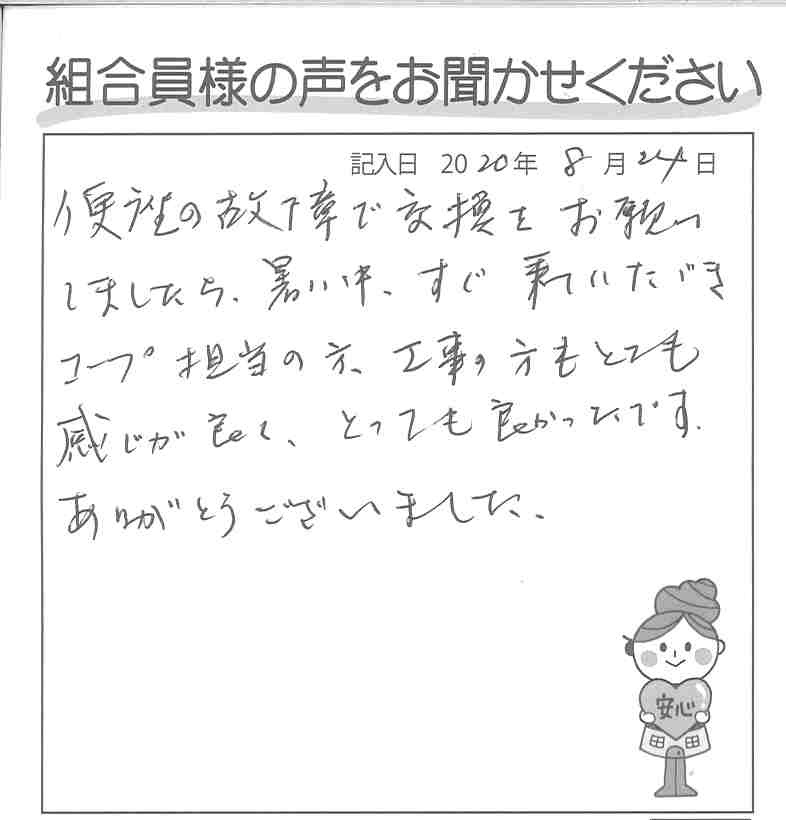 組合員様の声をお聞かせください
記入日 2020年 8月24日
便座の故障で交換をお願い
しましたら、暑い中、すぐ来ていただき
コープ担当の方、工事の方もとても
感じが良く、とっても良かったです.
ありがとうございました、
安心